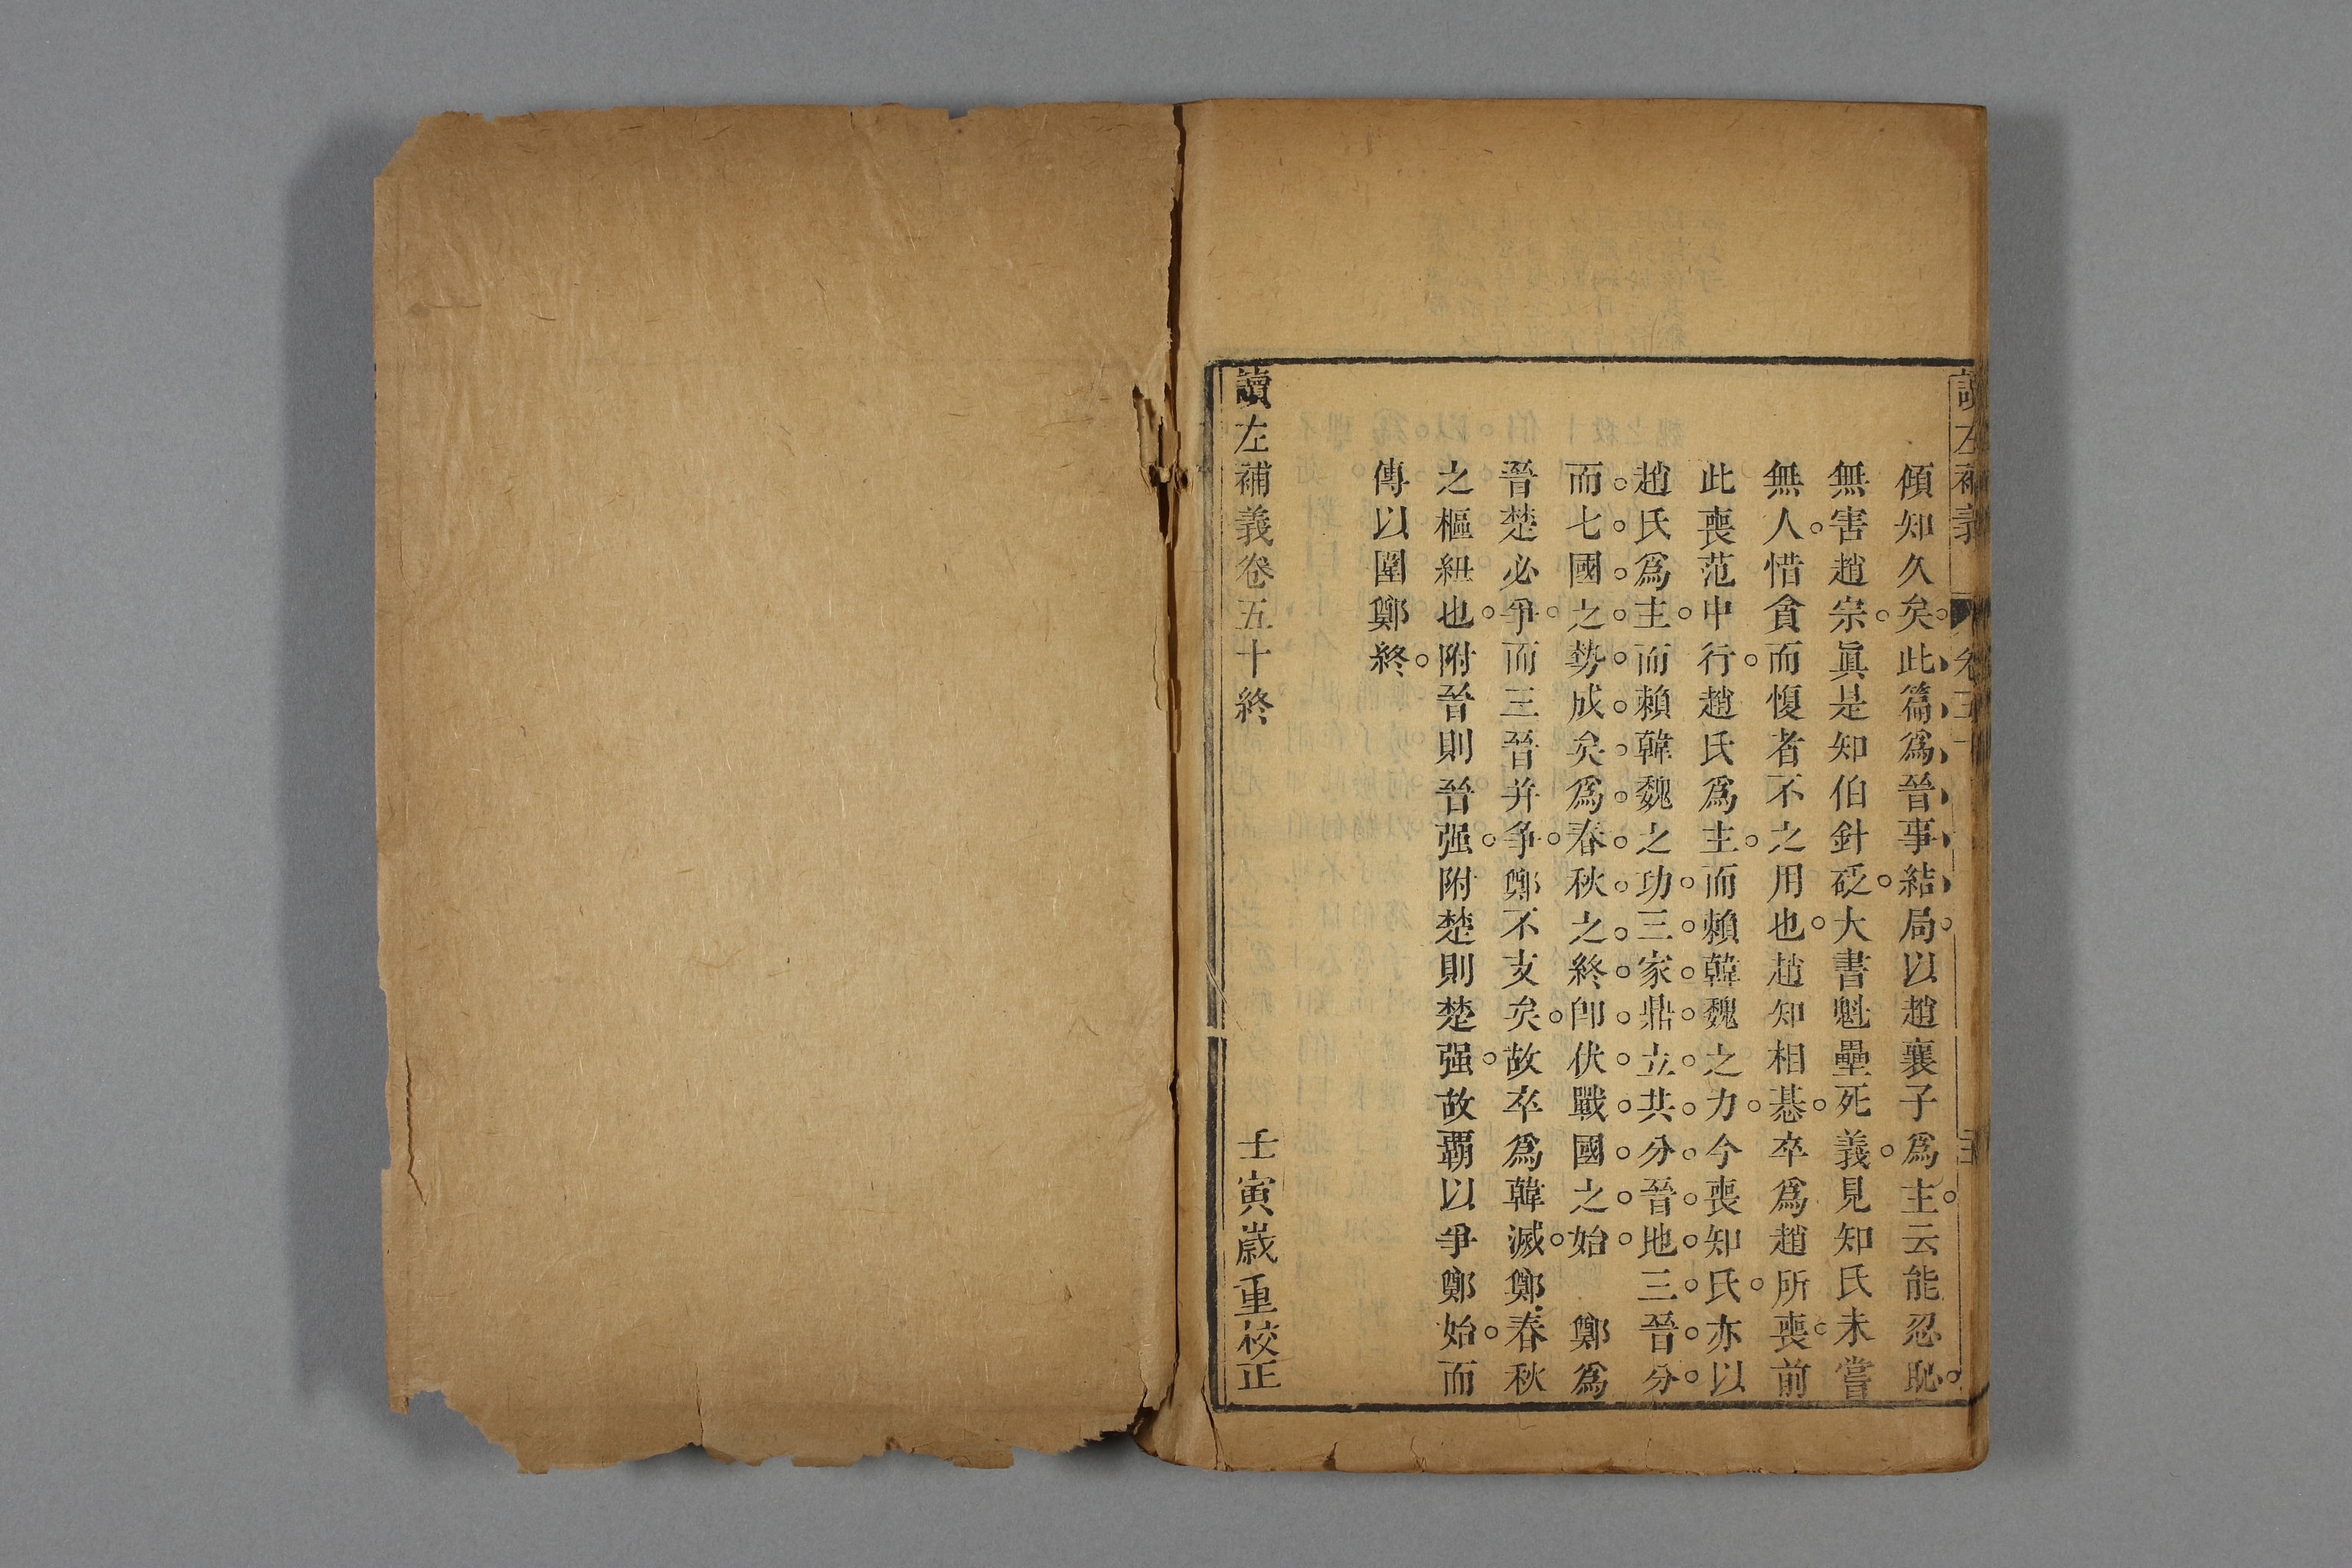 傾知久矣此篇爲晉事結局以趙襄子爲主云能忍恥
無害趙宗眞是知伯針砭大書魁壘死義見知氏未嘗
無人惜貪而愎者不之用也趙知相惎卒爲趙所喪前
此喪范中行趙氏爲主而賴韓魏之力今喪知氏亦以
趙氏爲主而賴韓魏之功三家鼎立共分晉地三晉分
而七國之勢成矣爲春秋之終卽伏戰國之始　鄭爲
晉楚必爭而三晉并争鄭不支矣故卒爲韓滅鄭春秋
之樞紐也附晉則晉强附楚則楚强故覇以爭鄭始而
傳以圍鄭終
讀左補義卷五十終
壬寅歲重校正